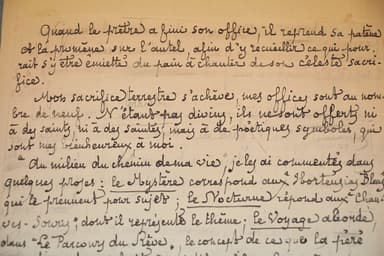 Quand le prêtre a fini son office, il reprend sa patène
et la promène sur l'autel, afin d'y recueillir ce qui pour-
rait s'y être émietté du pain à chanter de son céleste sacri-
fice.
Mon sacrifice terrestre s'achève, mes offices sont au nom-
bre de neuf. N'étant pas divins, ils ne sont offerts ni
à des saints, ni à des saintes, mais à de poétiques symboles, qui
sont mes bienheureux à moi.
"Du milieu du chemin de ma vie, je les ai commentés dans
quelques proses: le Mystère correspond aux "Hortensias Bleus"
qui le prennent pour sujet; le Nocturne répond aux "Chau-
ves-Souris", dont il représente le thème; Le Voyage aborde,
dans "Le Parcours du Rêve", le concept de ce que la